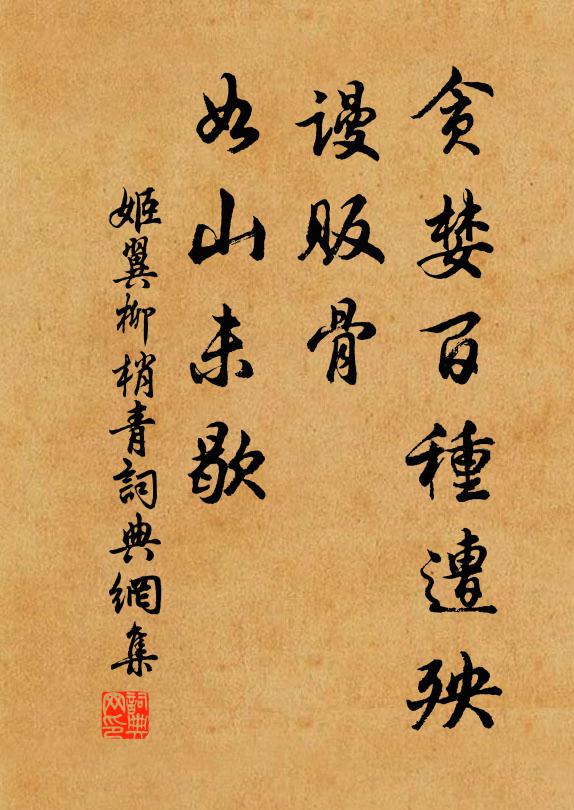 貪婪百種遭殃
謾販骨
如山未歇
姬翼柳梢青詞典網集
詞典
网印